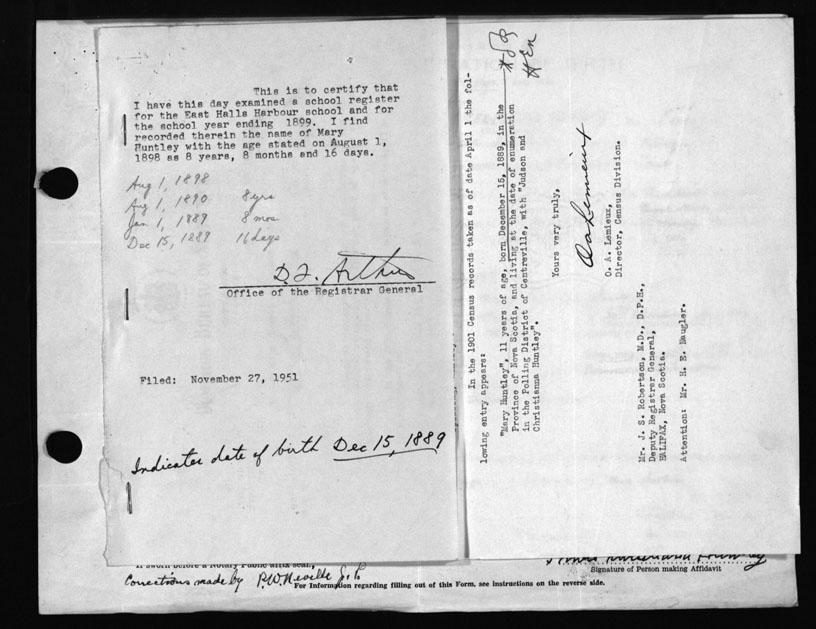 This is to certify that
I have this day examined a school register
for the East Halls Harbour school and for
the school year ending 1899. I find
recorded therein the name of Mary
Huntley with the age stated on August 1,
1898 as 8 years, 8 months and 16 days.
Aug 1, 1898
Aug 1, 1890 8 yrs
Jan 1, 1889 8 mos
Dec 15, 1889 16 days
Office of the Registrar General
Filed: November 27, 1951
Indicates date of birth Dec 15, 1889
In the 1901 Census records taken as of date April 1 the fol-
lowing entry appears:
"Mary Huntley", 11 years of age, born December 15, 1889, in the
Province of Nova Scotia, and living at the date of enumeration
in the Polling District of Centreville, with "Judson and
Christianna Huntley".
Yours very truly,
OA Lemieux
O. A. Lemieux,
Director, Census Division.
Mr. J. S. Robertson, M.D., D.P.H.,
Deputy Registrar General,
HALIFAX, Nova Scotia.
Attention: Mr. H. E. Naugler.
If sworn before a Notary Public affix seal,
Corrections made by P.W. Neville J.P.
Signature of Person making Affidavit
For Information regarding filling out of this Form, see instructions on the reverse side.